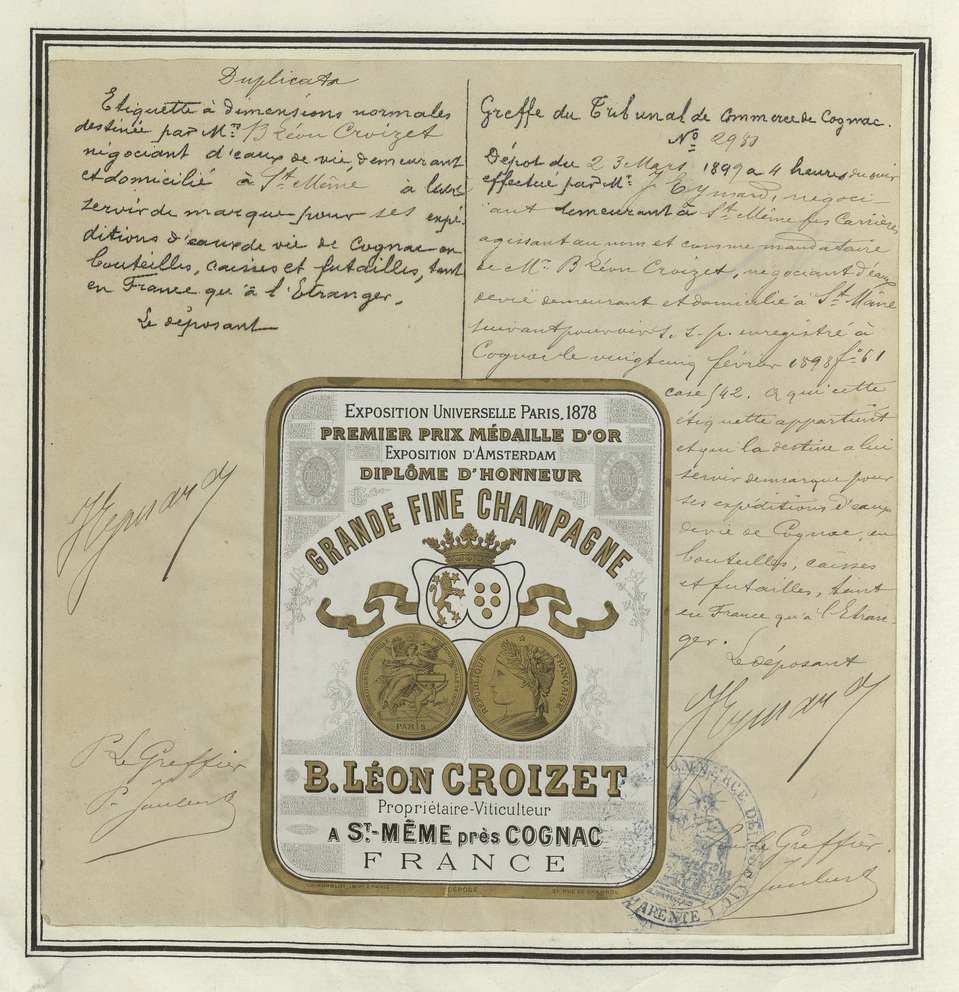 Duplicata
Etiquette à dimensions normales
destinée par Mr. B Léon Croizet
négociant d'eaux de vie demeurant
et domicilié à St. Même à lui
servir de marque pour ses expé-
ditions d'eaux de vie de Cognac en
bouteilles, caisses et futailles, tant
en France qu'à l'Etranger.
Le déposant
Heymard
P. Le Greffier
P. Joubert
Greffe du Tribunal de Commerce de Cognac.
No.
Dépot du 23 Mars 1899 a 4 heures du soir
effectué par Mr. J Eymard, negoci-
ant demeurant à St. Même les Carrières
agissant au nom et comme mandataire
de Mr. B Léon Croizet, négociant d'eaux
de vie demeurant et domicilié à St. Même
suivant pouvoir s. s. p. enregistré à
Cognac le vingt cinq février 1898 fo. 61
case 542. a qui cette
étiquette appartient
et qui la destine a lui
servir de marque pour
ses expéditions d'eaux
de vie de Cognac, en
bouteilles, caisses
et futailles, tant
en France qu'à l'Etran-
ger.
Le déposant
Heymard
Pour le Greffier
Joubert
EXPOSITION UNIVERSELLE PARIS, 1878
PREMIER PRIX MÉDAILLE D'OR
EXPOSITION D'AMSTERDAM
DIPLÔME D'HONNEUR
GRANDE FINE CHAMPAGNE
PARIS
RÉPUBLIQUE FRANÇAISE
B. LÉON CROIZET
Propriétaire-Viticulteur
A ST.-MÊME près COGNAC
FRANCE
DÉPOSÉ